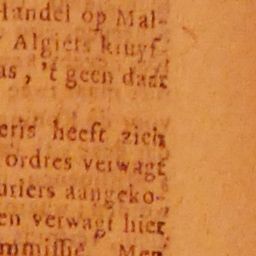 Handel op Mal-
Algiers kruyf-
as, 't geen daar
eris heeft zich
ordres verwagt
uriers aangeko-
en verwagt hier
mmissie. Men